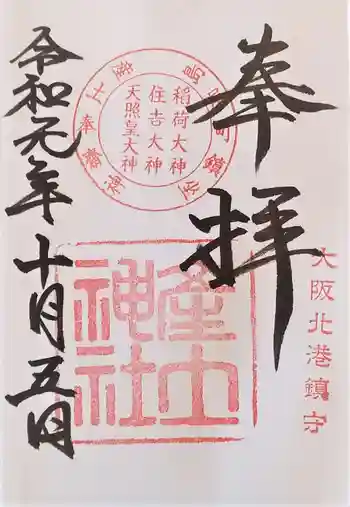 奉拝
大阪北港鎮守
稲荷大神
住吉大神
天照皇大神
産土神社
令和元年十月五日